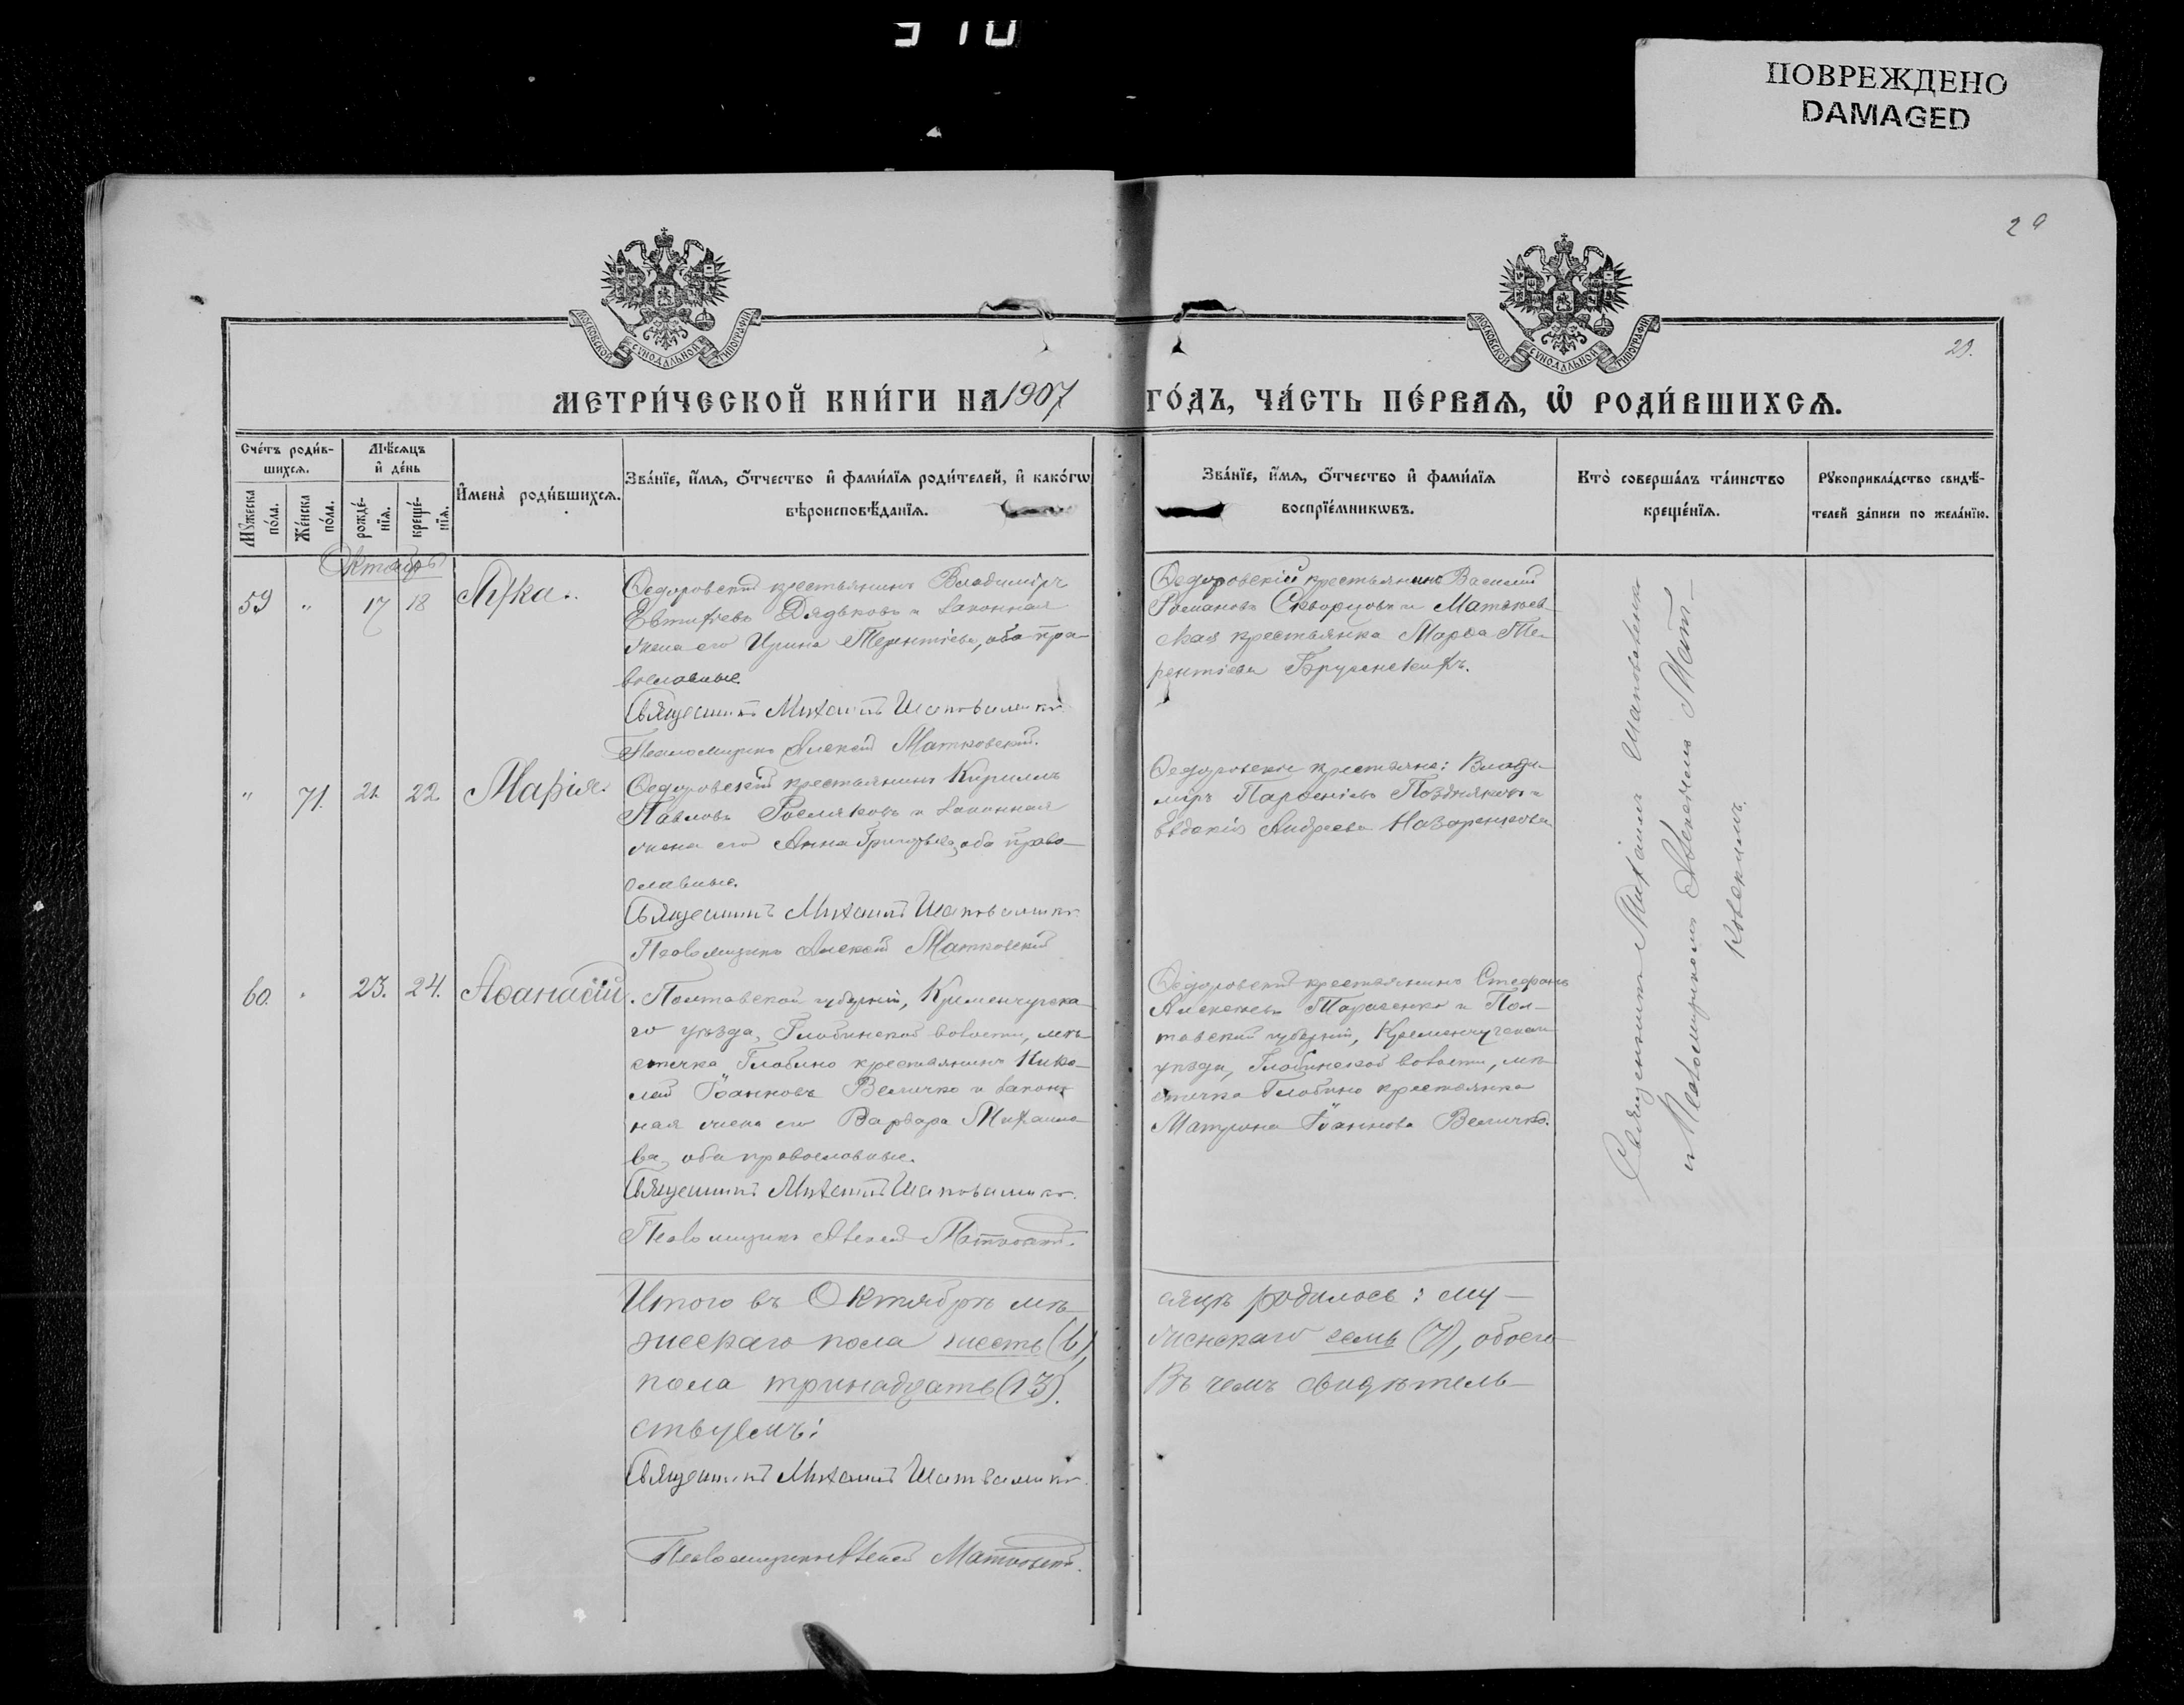 ПОВРЕЖДЕНО
DAMAGED
29
МОСКОВСКОЙ СѴНОДАЛЬНОЙ ТИПОГРАФІИ
МОСКОВСКОЙ СѴНОДАЛЬНОЙ ТИПОГРАФІИ
29.
МЕТРИ́ЧЕСКОЙ КНИ́ГИ НА 1907 ГО́ДЪ, ЧА́СТЬ ПЕ́РВАЯ, Ѡ РОДИ́ВШИХСЯ.
Счётъ роди́в-
шихся.
Мѣ́сяцъ
и҆ де́нь
Мꙋ́жеска
по́ла.
Же́нска
по́ла.
рожде́-
нїя.
креще́-
нїя.
И҆мена̀ роди́вшихся.
Зва́нїе, и҆́мя, ѻ҆́тчество и҆ фами́лїя роди́телей, и҆ како́гѡ
вѣроисповѣ́данїя.
Зва́нїе, и҆́мя, ѻ҆́тчество и҆ фами́лїя
воспрїе́мникѡвъ.
Кто̀ соверша́лъ та́инство
креще́нїя.
Рꙋкоприкла́дство свидѣ́-
телей за́писи по жела́нїю.
Октябрь
59 " 17 18 Лука.
Ѳедоровскій крестьянинъ Владиміръ
Евтифіевъ Дядьковъ и законная
жена его Ирина Терентіева, оба пра-
вославные.
Священникъ Михаилъ Шаповаленко
Псаломщикъ Алексій Матковскій.
Ѳедоровскій крестьянинъ Василій
Романовъ Скворцовъ и Матвѣев-
ская крестьянка Марѳа Те-
рентіева
" 71. 21. 22. Марія.
Ѳедоровскій крестьянинъ Кириллъ
Павловъ Росляковъ и законная
жена его Анна Григорьева, оба право-
славные.
Священникъ Михаилъ Шаповаленко
Псаломщикъ Алексій Матковскій
Ѳедоровскіе крестьяне: Влади-
міръ Парѳеніевъ Поздняковъ и
Евдокія Андреева Назаренкова
60. " 23. 24. Аѳанасій.
Полтавской губерніи, Кременчугска-
го уѣзда, Глобинской волости, мѣ-
стечка Глобино крестьянинъ Нико-
лай Іоанновъ Величко и закон-
ная жена его Варвара Михаило-
ва, оба православные.
Священникъ Михаилъ Шаповаленко.
Псаломщикъ Алексій Матковскій.
Ѳедоровскій крестьянинъ Стефанъ
Алексѣевъ Тарасенко и Пол-
тавской губерніи, Кременчугскаго
уѣзда, Глобинской волости, мѣ-
стечка Глобино крестьянка
Матрона Іоаннова Величко.
Священникъ Михаилъ Шаповаленко
и Псаломщикомъ Алексѣемъ Мат-
ковскимъ.
Итого въ Октябрѣ мѣ-
сяцѣ родилось: му-
жескаго пола шесть (6),
женскаго семь (7), обоего
пола тринадцать (13).
Въ чемъ свидѣтель-
ствуемъ:
Священникъ Михаилъ Шаповаленко.
Псаломщикъ Алексій Матковскій.